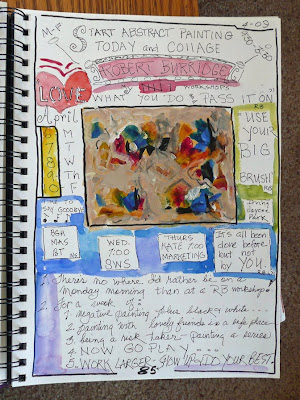 M-F
4-09
START ABSTRACT PAINTING
TODAY and COLLAGE
9:30-3:30
ROBERT BURRIDGE
WORKSHOPS
LOVE
WHAT YOU DO & PASS IT ON"
RB
April
6 M
7 T
8 W
9 Th
10 F
"USE
YOUR
BIG
BRUSH"
TIME TO
SAY GOODBYE
Irving
Layout
Park
BGH
MAS
WED
7:00
BWS
THURS
KATE 7:00
MARKETING
It's all been
done before
but not
by YOU.
1. There's no where I'd rather be on a
Monday morning than at a RB workshop
2. For a week of:
1 negative painting plus black & white...
2 painting with lovely friends in a safe place
3. being a risk taker. Painting a series
4 NOW GO PLAY....
5. WORK LARGER - SHOW UP, DO YOUR BEST.
85